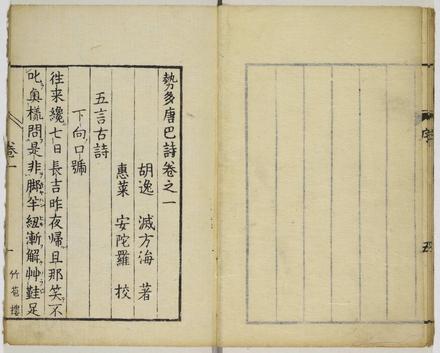 勢多唐巴詩卷之一
胡逸 滅方海 著
惠菜 安陀羅 校
五言古詩
下向口號
往来纔七日長吉昨夜帰且那笑不
叱奥様問是非脚半紐漸解艸鞋足
卷一
一
竹苞樓